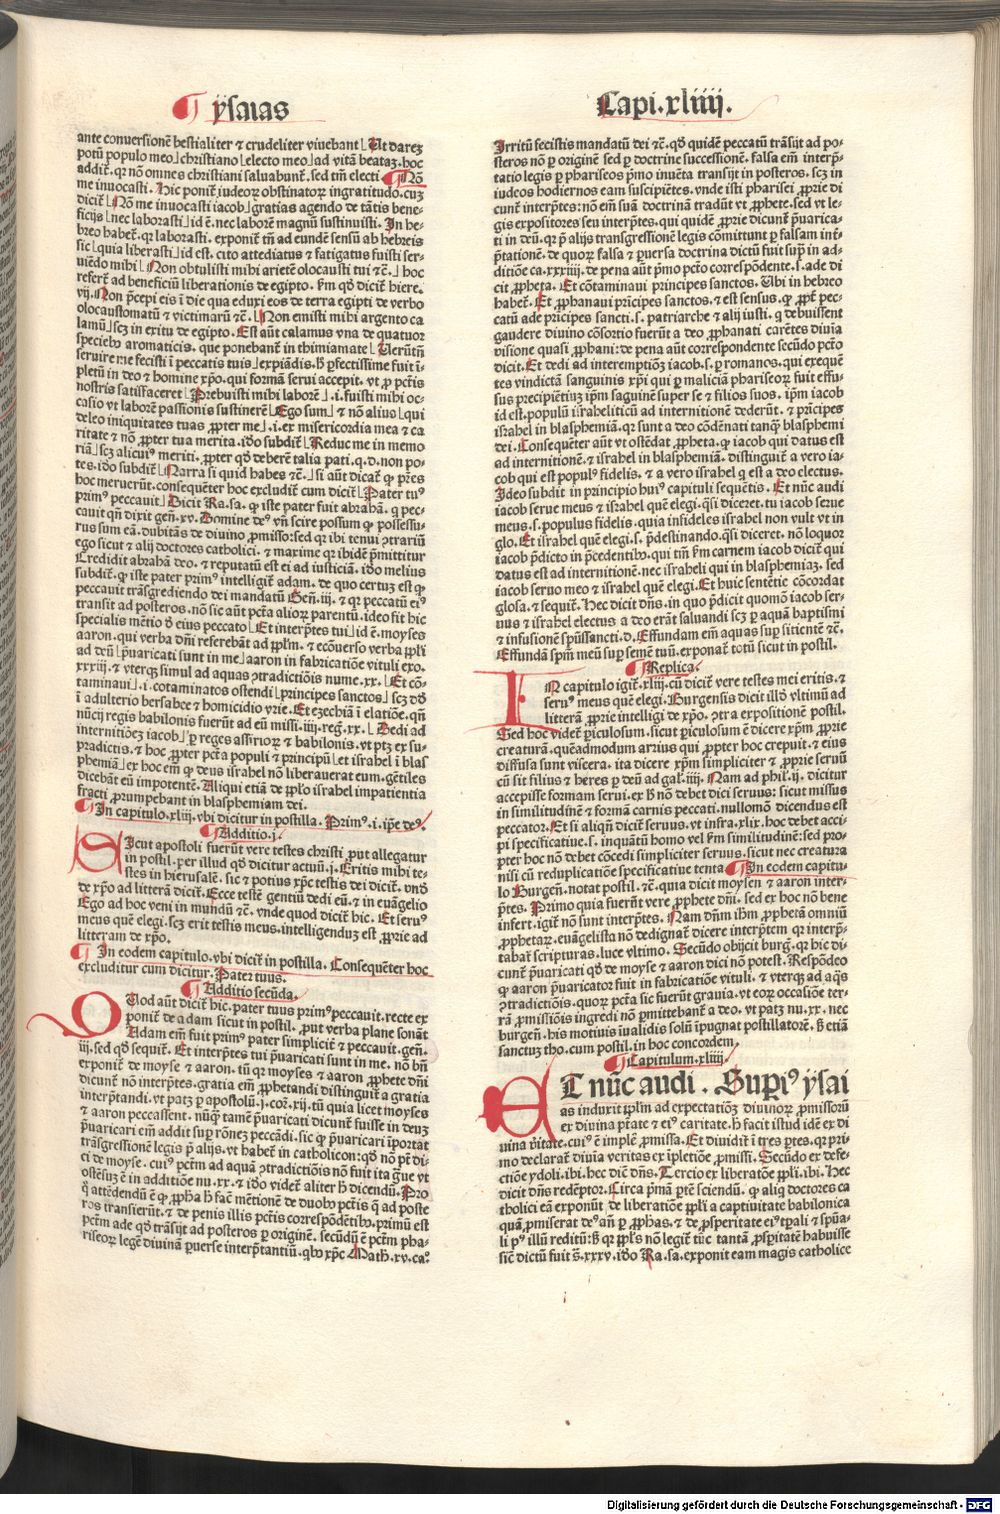 ÿsaias
Capi.xliiij.
ante conuersionē bestialiter ⁊ crudeliter viuebant ⌊Ut darē
potū populo meo⌋christiano⌊electo meo⌋ad vitā beatā. hoc
addit̄. qꝛ nō omnes christiani saluabunt̄. sed tm̄ electi. ¶Nō
me inuocasti. Hic ponit̄ iudeoꝝ obstinatoꝝ ingratitudo. cuꝫ
dicit̄⌊Nō me inuocasti iacob⌋gratias agendo de tātis bene-
ficijs⌊nec laborasti⌋id ē. nec laborē magnū sustinuisti. In he-
breo habet̄. qꝛ laborasti. exponit̄ tn̄ ad eundē sensū ab hebreis
sic⌊quia liberasti⌋id est. cito attediatus ⁊ fatigatus fuisti ser-
uiēdo mihi⌊Non obtulisti mihi arietē olocausti tui ⁊c̄.⌋hoc
refert̄ ad beneficiū liberationis de egipto. km̄ qd̄ dicit̄ hiere.
vij. Non p̄cepi eis ī die qua eduxi eos de terra egipti de verbo
olocaustomatū ⁊ victimarū ⁊c̄.⌊Non emisti mihi argento ca
lamū⌋scꝫ in exitu de egipto. Est aūt calamus vna de quatuor
speciebꝰ aromaticis. que ponebant̄ in thimiamate⌊Uerūtn̄
seruire me fecisti ī peccatis tuis⌋expiādis. h̄ ꝑfectissime fuit ī-
pletū in deo ⁊ homine xp̄o. qui formā serui accepit. vt ꝓ pctīs
nostris satisfaceret⌊Prebuisti mihi laborē⌋.i. fuisti mihi oc-
casio vt laborē passionis sustinerē⌊Ego sum⌋⁊ nō alius⌊qui
deleo iniquitates tuas ꝓpter me⌋.i. ex misericordia mea ⁊ ca
ritate ⁊ nō ꝓpter tua merita. iō subdit̄⌊Reduc me in memo
riā⌋scꝫ alicuiꝰ meriti. ꝓpter qd̄ deberē talia pati. q. d. non po-
tes. iō subdit̄⌊Narra si quid habes ⁊c̄.⌋si aūt dicat̄ ꝙ p̄res
hoc meruerūt. consequēter hoc excludit̄ cum dicit̄⌊Pater tuꝰ
primꝰ peccauit⌋Dicit Ra. sa. ꝙ iste pater fuit abrahā. q̄ pec-
cauit qn̄ dixit gen̄. xv. Domine deꝰ vn̄ scire possum ꝙ possessu-
rus sum eā. dubitās de diuino ꝓmisso: sed qꝛ ibi tenui ꝯtrariū
ego sicut ⁊ alij doctores catholici. ⁊ maxime qꝛ ibidē p̄mittitur
Credidit abrahā deo. ⁊ reputatū est ei ad iusticiā. iō melius
subdit̄. ꝙ iste pater primꝰ intelligit̄ adam. de quo certuꝫ est ꝙ
peccauit trāsgrediendo dei mandatū Gen̄. iij. ⁊ qꝛ peccatū eiꝰ
transit ad posteros. nō sic aūt pctā alioꝝ parentū. ideo fit hic
specialis mētio ð eius peccato⌊Et interp̄tes tui⌋id ē. moyses
aaron. qui verba dn̄i referebāt ad ppl̄m. ⁊ ecōuerso verba ppl̄i
ad deū⌊p̄uaricati sunt in me⌋aaron in fabricatiōe vituli exo.
xxxiij. ⁊ vterqꝫ simul ad aquas ꝯtradictiōis nume. xx.⌊Et cō-
taminaui⌋.i. cotaminatos ostendi⌊principes sanctos⌋scꝫ dð
ī adulterio bersabee ⁊ homicidio vrie. Et ezechiā ī elatiōe. qn̄
nūcij regis babilonis fuerūt ad eū missi. iiij. reḡ. xx.⌊Dedi ad
internitiōeꝫ iacob⌋ꝑ reges assirioꝝ ⁊ babilonis. vt ptꝫ ex su-
pradictis. ⁊ hoc ꝓpter pctā populi ⁊ principū⌊et israhel ī blas
phemiā⌋ex hoc em̄ ꝙ deus israhel nō liberauerat eum. gētiles
dicebāt eū impotentē. Aliqui etiā de ppl̄o israhel impatientia
fracti ꝓrumpebant in blasphemiam dei.
¶In capitulo. xliij. vbi dicitur in postilla. Primꝰ. i. ip̄e deꝰ.
¶Additio. j.
SIcut apostoli fuerūt vere testes christi ꝓut allegatur
in postil. ꝑ illud qd̄ dicitur actuū. j. Eritis mihi te-
stes in hierusalē. sic ⁊ potius xp̄c testis dei dicit̄. vnð
de xp̄o ad litterā dicit̄. Ecce testē gentiū dedi eū. ⁊ in euāgelio
Ego ad hoc veni in mundū ⁊c̄. vnde quod dicit̄ hic. Et seruꝰ
meus quē elegi. scꝫ erit testis meus. intelligenduꝫ est ꝓprie ad
litteram de xp̄o.
¶In eodem capitulo. vbi dicit̄ in postilla. Consequēter hoc
excluditur cum dicitur. Pater tuus.
¶Additio secūda.
QUod aūt dicit̄ hic. pater tuus primꝰ peccauit. recte ex
ponit̄ de adam sicut in postil. ꝓut verba plane sonāt
Adam em̄ fuit primꝰ pater simplicit̄ ⁊ peccauit. gen̄.
iij. sed qd̄ sequit̄. Et interp̄tes tui p̄uaricati sunt in me. nō bn̄
exponit̄ de moyse ⁊ aaron. tū qꝛ moyses ⁊ aaron ꝓphete dn̄i
dicunt̄ nō interp̄tes. gratia em̄ ꝓphetandi distinguit̄ a gratia
interp̄tandi. vt patꝫ ꝑ apostolū. j. coꝝ. xij. tū quia licet moyses
⁊ aaron peccassent. nūqꝫ tamē p̄uaricati dicunt̄ fuisse in deuꝫ
p̄uaricari em̄ addit suꝑ rōnez peccādi. sic ꝙ p̄uaricari īportat
trāsgressionē legis ꝑ alijs. vt habet̄ in catholicon: qd̄ nō pt̄ di-
ci de moyse. cuiꝰ pctm̄ ad aquā ꝯtradictiōis nō fuit ita g̅ue vt
ostēsuꝫ ē in additiōe nu. xx. ⁊ iō videt̄ aliter h̄ dicendū. Pro
q̊ attēdendū ē ꝙ ꝓpha h̄ facit mētionē de duobꝰ pctīs q̄ ad poste
ros transierūt. ⁊ de penis illis pctīs correspōdētibꝰ. primū est
pctm̄ ade qd̄ trāsijt ad posteros ꝑ originē. secūdū ē pctm̄ pha-
riseoꝝ legē diuinā ꝑuerse interp̄tantiū. qbꝰ xp̄c Math. xv. ca.
Irritū fecistis mandatū dei ⁊c̄. qd̄ quidē peccatū trāsijt ad po-
steros nō ꝑ originē sed ꝑ doctrine successionē. falsa em̄ interp̄-
tatio legis ꝑ phariseos p̄mo inuēta transijt in posteros. scꝫ in
iudeos hodiernos eam suscipiētes. vnde isti pharisei ꝓprie di
cunt̄ interp̄tes: nō em̄ suā doctrinā tradūt vt ꝓphete. sed vt le-
gis expositores seu interp̄tes. qui quidē ꝓprie dicunt̄ p̄uarica-
ti in deū. qꝛ ꝑ alijs transgressionē legis cōmittunt ꝑ falsam int̄-
p̄tationē. de quoꝝ falsa ⁊ ꝑuersa doctrina dictū fuit suꝑ in ad-
ditiōe ca. xxxiiij. de pena aūt p̄mo pctō correspōdente. s. ade di
cit ꝓpheta. Et cōtaminaui principes sanctos. Ubi in hebreo
habet̄. Et ꝓphanaui prīcipes sanctos. ⁊ est sensus. ꝙ ꝓpt̄ pec-
catū ade prīcipes sancti. s. patriarche ⁊ alij iusti. q̄ debuissent
gaudere diuino cōsortio fuerūt a deo ꝓphanati carētes diuīa
visione quasi ꝓphani: de pena aūt correspondente secūdo pctō
dicit. Et dedi ad interemptiōꝫ iacob. s. ꝑ romanos. qui exequē
tes vindictā sanguinis xp̄i qui ꝑ maliciā phariseoꝝ fuit effu-
sus precipientiuꝫ ip̄m saguinē super se ⁊ filios suos. ip̄m iacob
id est. populū israheliticū ad internitionē dederūt. ⁊ prīcipes
israhel in blasphemiā. qꝛ sunt a deo cōdēnati tanqꝫ blasphemi
dei. Consequēter aūt vt ostēdat ꝓpheta. ꝙ iacob qui datus est
ad internitionē. ⁊ israhel in blasphemiā. distinguit̄ a vero ia-
cob qui est populꝰ fidelis. ⁊ a vero israhel q̄ est a deo electus.
Ideo subdit in principio huiꝰ capituli sequētis. Et nūc audi
iacob serue meus ⁊ israhel quē elegi. q̄si diceret. tu iacob serue
meus. s. populus fidelis. quia infideles israhel non vult vt in
glo. Et israhel quē elegi. s. p̄destinando. q̄si diceret. nō loquor
iacob p̄dicto in p̄cedentibꝰ. qui tm̄ km̄ carnem iacob dicit̄ qui
datus est ad internitionē. nec israheli qui in blasphemiaꝫ. sed
iacob seruo meo ⁊ israhel quē elegi. Et huic sentētie cōcordat
glosa. ⁊ sequit̄. Hec dicit dn̄s. in quo p̄dicit quomō iacob ser-
uus ⁊ israhel electus a deo erāt saluandi scꝫ ꝑ aquā baptismi
⁊ infusionē sp̄ussancti. d. Effundam em̄ aquas suꝑ sitientē ⁊c̄.
Effundā sp̄m meū suꝑ semē tuū. exponat̄ totū sicut in postil.
¶Replica.
IN capitulo igit̄. xliij. cū dicit̄ vere testes mei eritis. ⁊
seruꝰ meus quē elegi. Burgensis dicit illō vltimū ad
litterā ꝓprie intelligi de xp̄o. ꝯtra expositionē postil.
Sed hoc videt̄ ꝑiculosum. sicut ꝑiculosum ē dicere xp̄m ꝓprie
creaturā. quēadmodum arrius qui ꝓpter hoc crepuit. ⁊ eius
diffusa sunt viscera. ita dicere xp̄m simpliciter ⁊ ꝓprie seruū
cū sit filius ⁊ heres ꝑ deū ad gal̄. iiij. Nam ad phil̄. ij. dicitur
accepisse formam serui. ex h̄ nō debet dici seruus: sicut missus
in similitudinē ⁊ formā carnis peccati. nullomō dicendus est
peccator. Et si aliqn̄ dicit̄ seruus. vt infra. xlix. hoc debet acci
pi specificatiue. s. inquātū homo vel km̄ similitudinē: sed pro-
pter hoc nō debet cōcedi simpliciter seruus. sicut nec creatura
nisi cū reduplicatiōe specificatiue tenta. ¶In eodem capitu-
lo Burgen̄. notat postil. ⁊c̄. quia dicit moysen ⁊ aaron inter-
p̄tes. Primo quia fuerūt vere ꝓphete dn̄i. sed ex hoc nō bene
infert. igit̄ nō sunt interp̄tes. Nam dn̄m ihm̄ ꝓphetā omniū
ꝓphetaꝝ. euāgelista nō dedignat̄ dicere interp̄tem qꝛ interp̄-
tabat̄ scripturas. luce vltimo. Secūdo obijcit burḡ. qꝛ hic di-
cunt̄ p̄uaricati qd̄ de moyse ⁊ aaron dici nō potest. Respōdeo
ꝙ aaron p̄uaricator fuit in fabricatiōe vituli. ⁊ vterqꝫ ad aq̄s
ꝯtradictiōis. quoꝝ pctā sic fuerūt grauia. vt eoꝝ occasiōe ter-
rā ꝓmissiōis ingredi nō ꝑmittebant̄ a deo. vt patꝫ nu. xx. nec
burgen̄. his motiuis īualidis solū īpugnat postillatorē. h̄ etiā
sanctuꝫ tho. cum postil. in hoc concordem.
¶Capitulum. xliiij.
ET nūc audi. Supꝛiꝰ ÿsai
as induxit ppl̄m ad expectatiōeꝫ diuinoꝝ ꝓmissoꝝ
ex diuina pt̄ate ⁊ eiꝰ caritate. h̄ facit istud idē ex di
uina v̄itate. cuiꝰ ē implē ꝓmissa. Et diuidit̄ ī tres ptes. qꝛ pri-
mo declarat̄ diuīa veritas ex īpletiōe ꝓmissi. Secūdo ex defe-
ctiōe ydoli. ibi. hec diē dn̄s. Tercio ex liberatōe ppl̄i. ibi. Hec
dicit dn̄s redēptor. Circa p̄mā ptē sciendū. ꝙ aliq̄ doctores ca
tholici eā exponūt de liberatiōe ppl̄i a captiuitate babilonica
quā ꝓmiserat deꝰ an̄ ꝑ ꝓphas. ⁊ de ꝓsperitate eiꝰ tp̄ali ⁊ spūa-
li pꝰ illū reditū: h̄ qꝛ ppl̄s nō legit̄ tūc tantā ꝓsp̄itatē habuisse
sic̄ dictū fuit s̄. xxxv. iō Ra. sa. exponit eam magis catholice
Digitalisierung gefördert durch die Deutsche Forschungsgemeinschaft - DFG